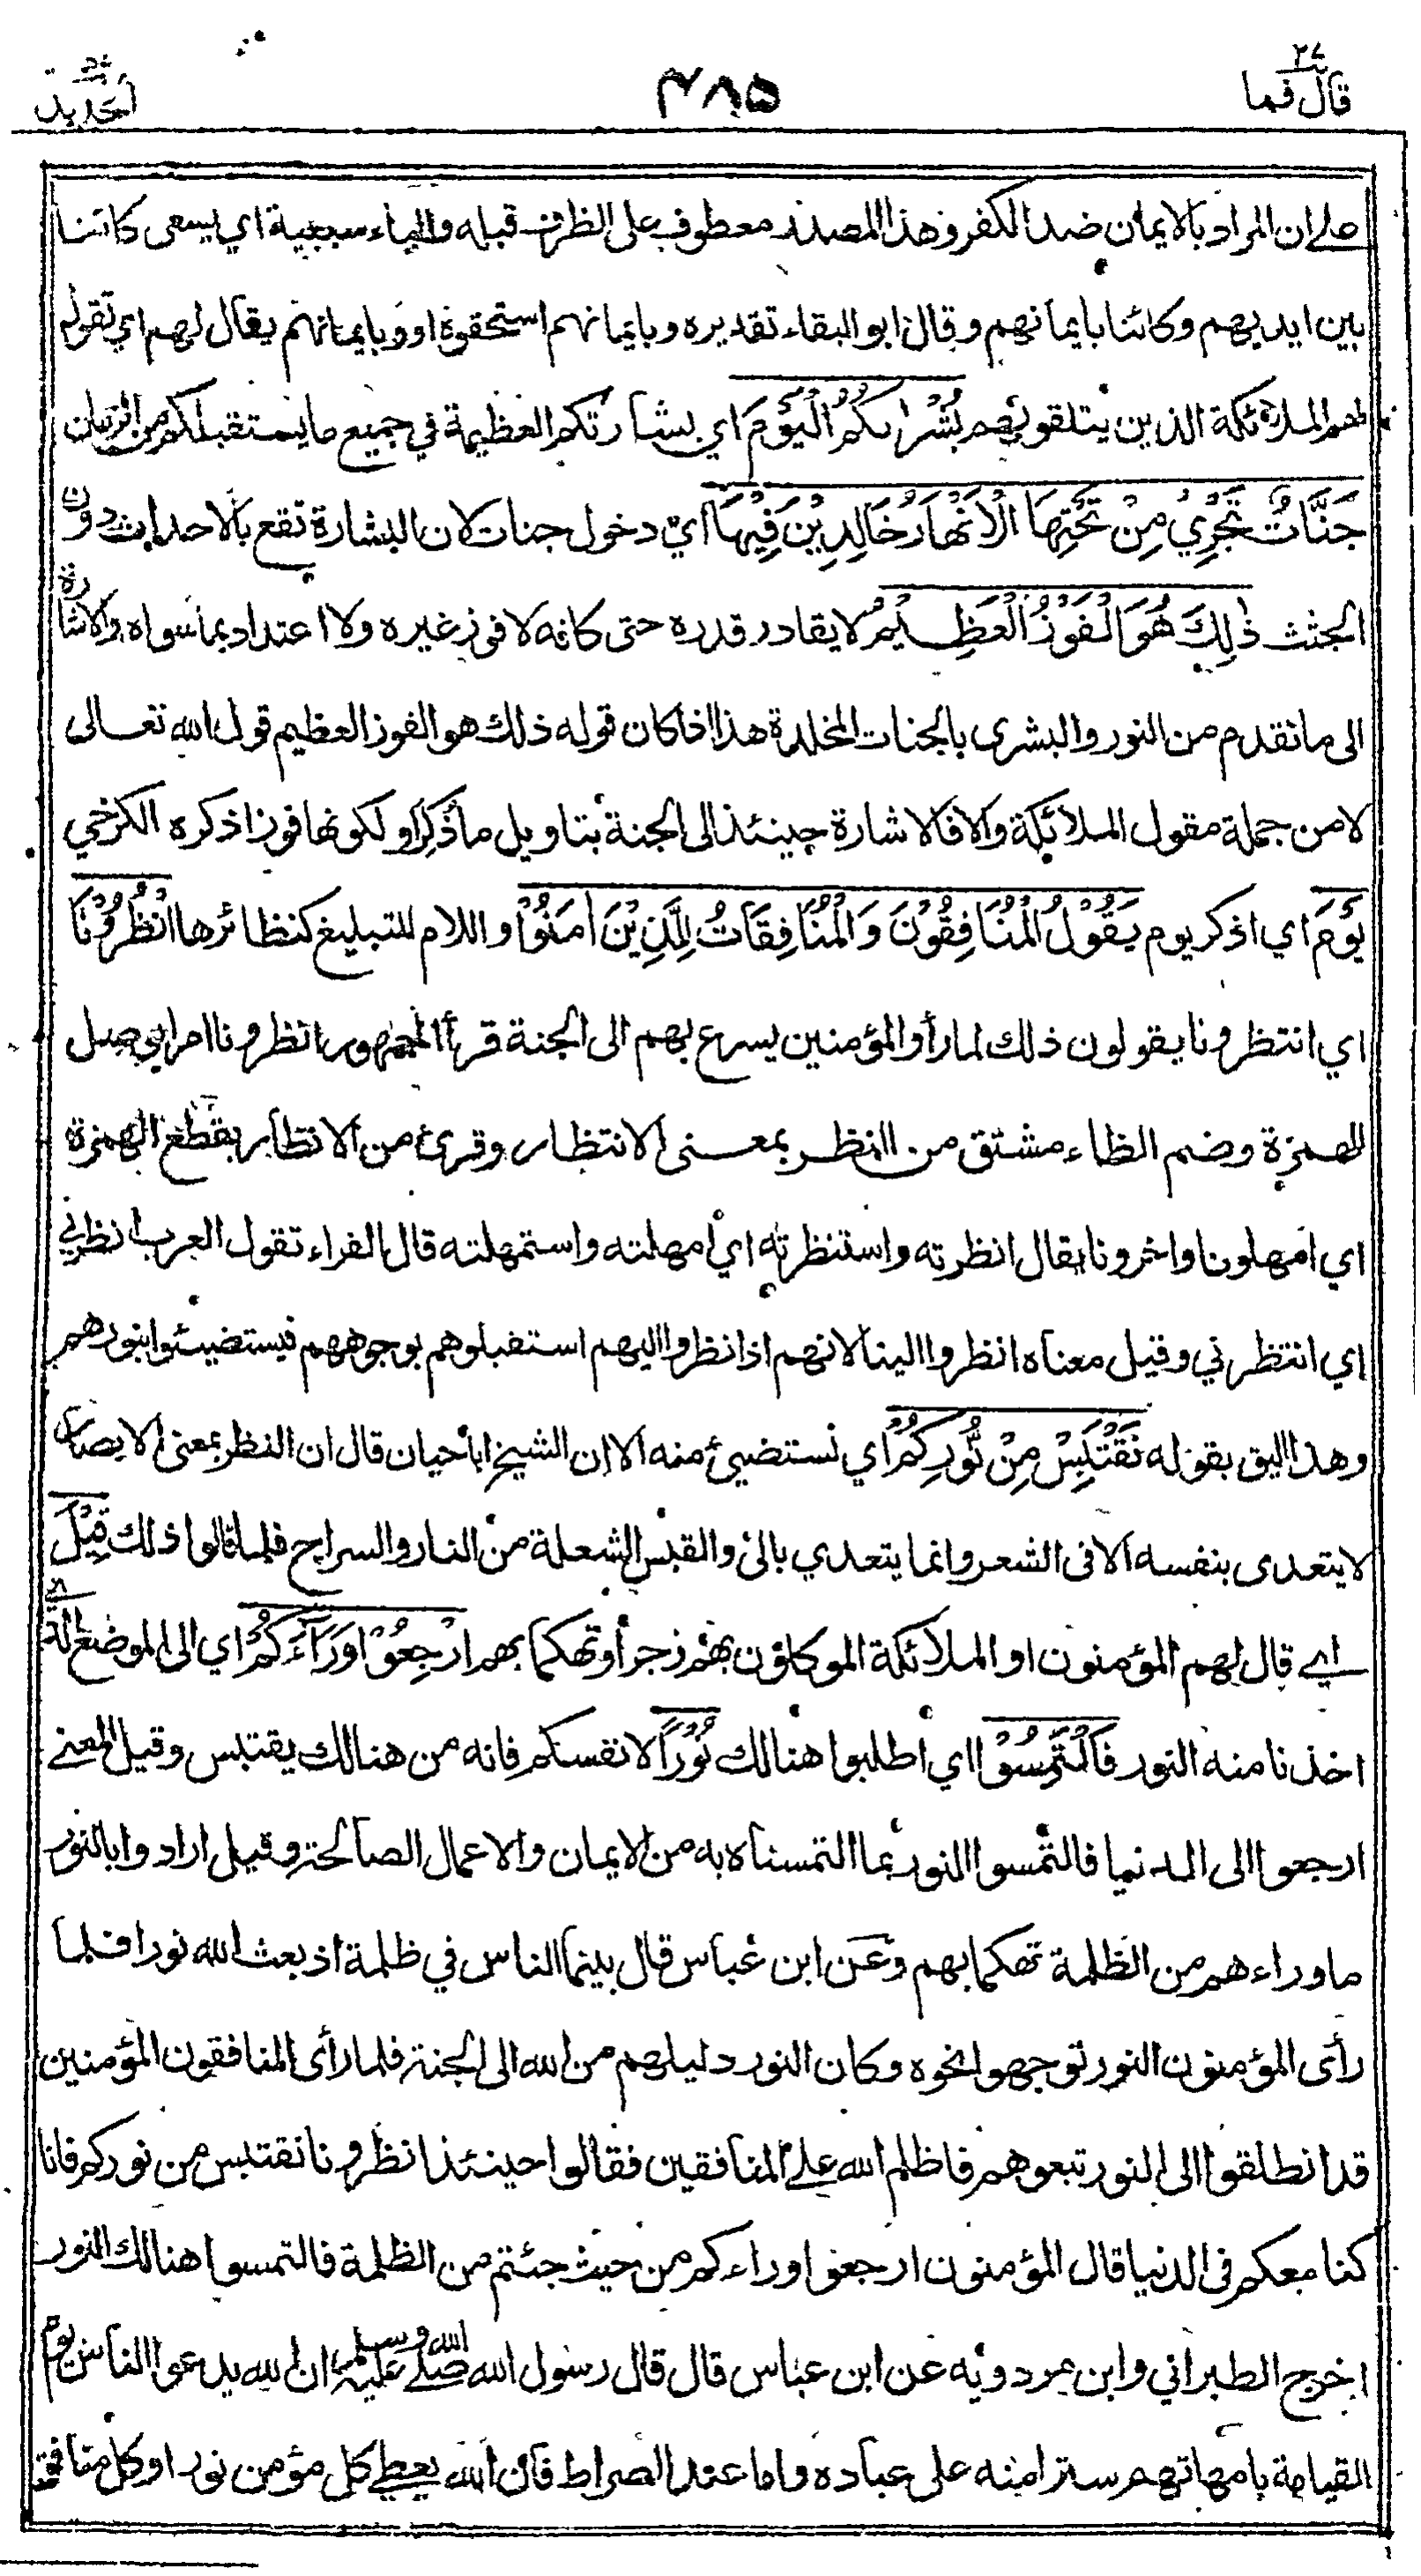 قال فما ٢٧
٣٨٥
الحديد ٥٧
على ان المراد بالايمان ضد الكفر وهذا المصدر معطوف على الظرف قبله والباء سببية اي يسعى كائنا
بين ايديهم وكائنا بايمانهم وقال ابو البقاء تقديره وبايمانهم استحقوه او وبايمانهم يقال لهم اي تقول
لهم الملائكة الذين يتلقونهم بُشْرَاكُمُ الْيَوْمَ اي بشارتكم العظيمة في جميع ما يستقبلكم من الزمان
جَنَّاتٌ تَجْرِيْ مِنْ تَحْتِهَا الْاَنْهَارُ خَالِدِيْنَ فِيْهَا اي دخول جنات لان البشارة تقع بالاحداث دون
الجثث ذٰلِكَ هُوَ الْفَوْزُ الْعَظِيْمُ لا يقادر قدره حتى كانه لا فوز غيره ولا اعتداد بما سواه والاشارة
الى ما تقدم من النور والبشرى بالجنات المخلدة هذا اذا كان قوله ذلك هو الفوز العظيم قول الله تعالى
لا من جملة مقول الملائكة والا فالاشارة حينئذ الى الجنة بتاويل ما ذُكِرَ او لكونها فوزا ذكره الكرخي
يَوْمَ اي اذكر يوم يَقُوْلُ الْمُنَافِقُوْنَ وَالْمُنَافِقَاتُ لِلَّذِيْنَ اٰمَنُوْا واللام للتبليغ كنظائرها انْظُرُوْنَا
اي انتظرونا يقولون ذلك لما رأوا المؤمنين يسرع بهم الى الجنة قرأ الجمهور انظرونا امرا بوصل
الهمزة وضم الظاء مشتق من النظر بمعنى الانتظار وقرئ من الانظار بقطع الهمزة
اي امهلونا واخرونا يقال انظرته واستنظرته اي امهلته واستمهلته قال الفراء تقول العرب انظرني
اي انتظرني وقيل معناه انظروا الينا لانهم اذا نظروا اليهم استقبلوهم بوجوههم فيستضيئوا بنورهم
وهذا اليق بقوله نَقْتَبِسْ مِنْ نُّوْرِكُمْ اي نستضيئ منه الا ان الشيخ ابا حيان قال ان النظر بمعنى الابصار
لا يتعدى بنفسه الا في الشعر وانما يتعدي بالى والقبس الشعلة من النار والسراج فلما قالوا ذلك قِيْلَ
اي قال لهم المؤمنون او الملائكة الموكلون بهم زجرا وتهكما بهم ارْجِعُوْا وَرَآءَكُمْ اي الى الموضع الذي
اخذنا منه النور فَالْتَمِسُوْا اي اطلبوا هنالك نُوْرًا لانفسكم فانه من هنالك يقتبس وقيل المعنى
ارجعوا الى الدنيا فالتمسوا النور بما التمسناه به من الايمان والاعمال الصالحة وقيل ارادوا بالنور
ما وراءهم من الظلمة تهكما بهم وعن ابن عباس قال بينما الناس في ظلمة اذ بعث الله نورا فلما
رأى المؤمنون النور توجهوا نحوه وكان النور دليلهم من الله الى الجنة فلما رأى المنافقون المؤمنين
قد انطلقوا الى النور تبعوهم فاظلم الله على المنافقين فقالوا حينئذ انظرونا نقتبس من نوركم فانا
كنا معكم في الدنيا قال المؤمنون ارجعوا وراءكم من حيث جئتم من الظلمة فالتمسوا هنالك النور
اخرج الطبراني وابن مردويه عن ابن عباس قال قال رسول الله صلى الله عليه وسلم ان الله يدعو الناس يوم
القيامة بامهاتهم سترا منه على عباده واما عند الصراط فان الله يعطي كل مؤمن نورا وكل منافق